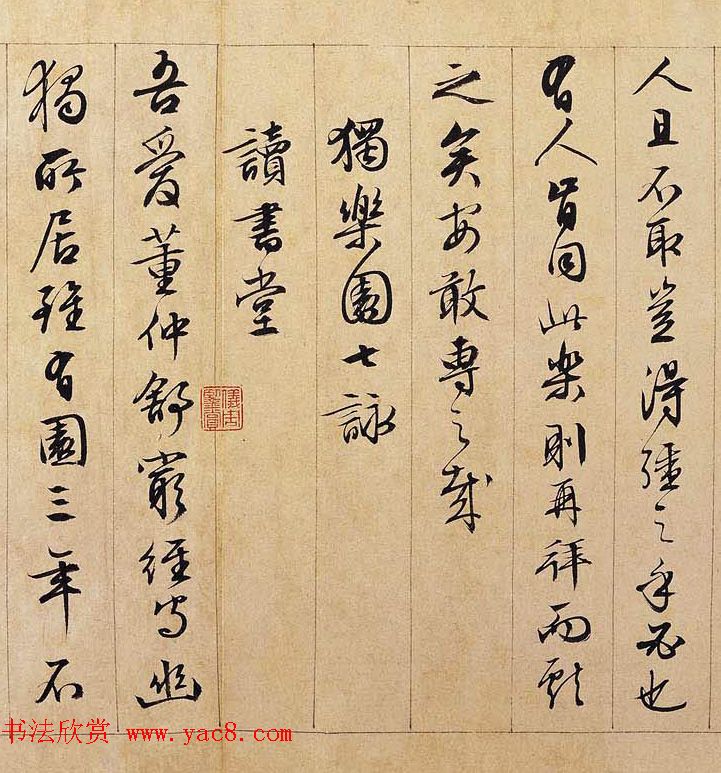 人且不取豈得彊之乎必也
有人肯同此樂則再拜而獻
之矣安敢專之哉
獨樂園七詠
讀書堂
吾愛董仲舒窮經守幽
獨所居雖有園三年不
儀周鑒賞
书法欣赏 www.yac8.com